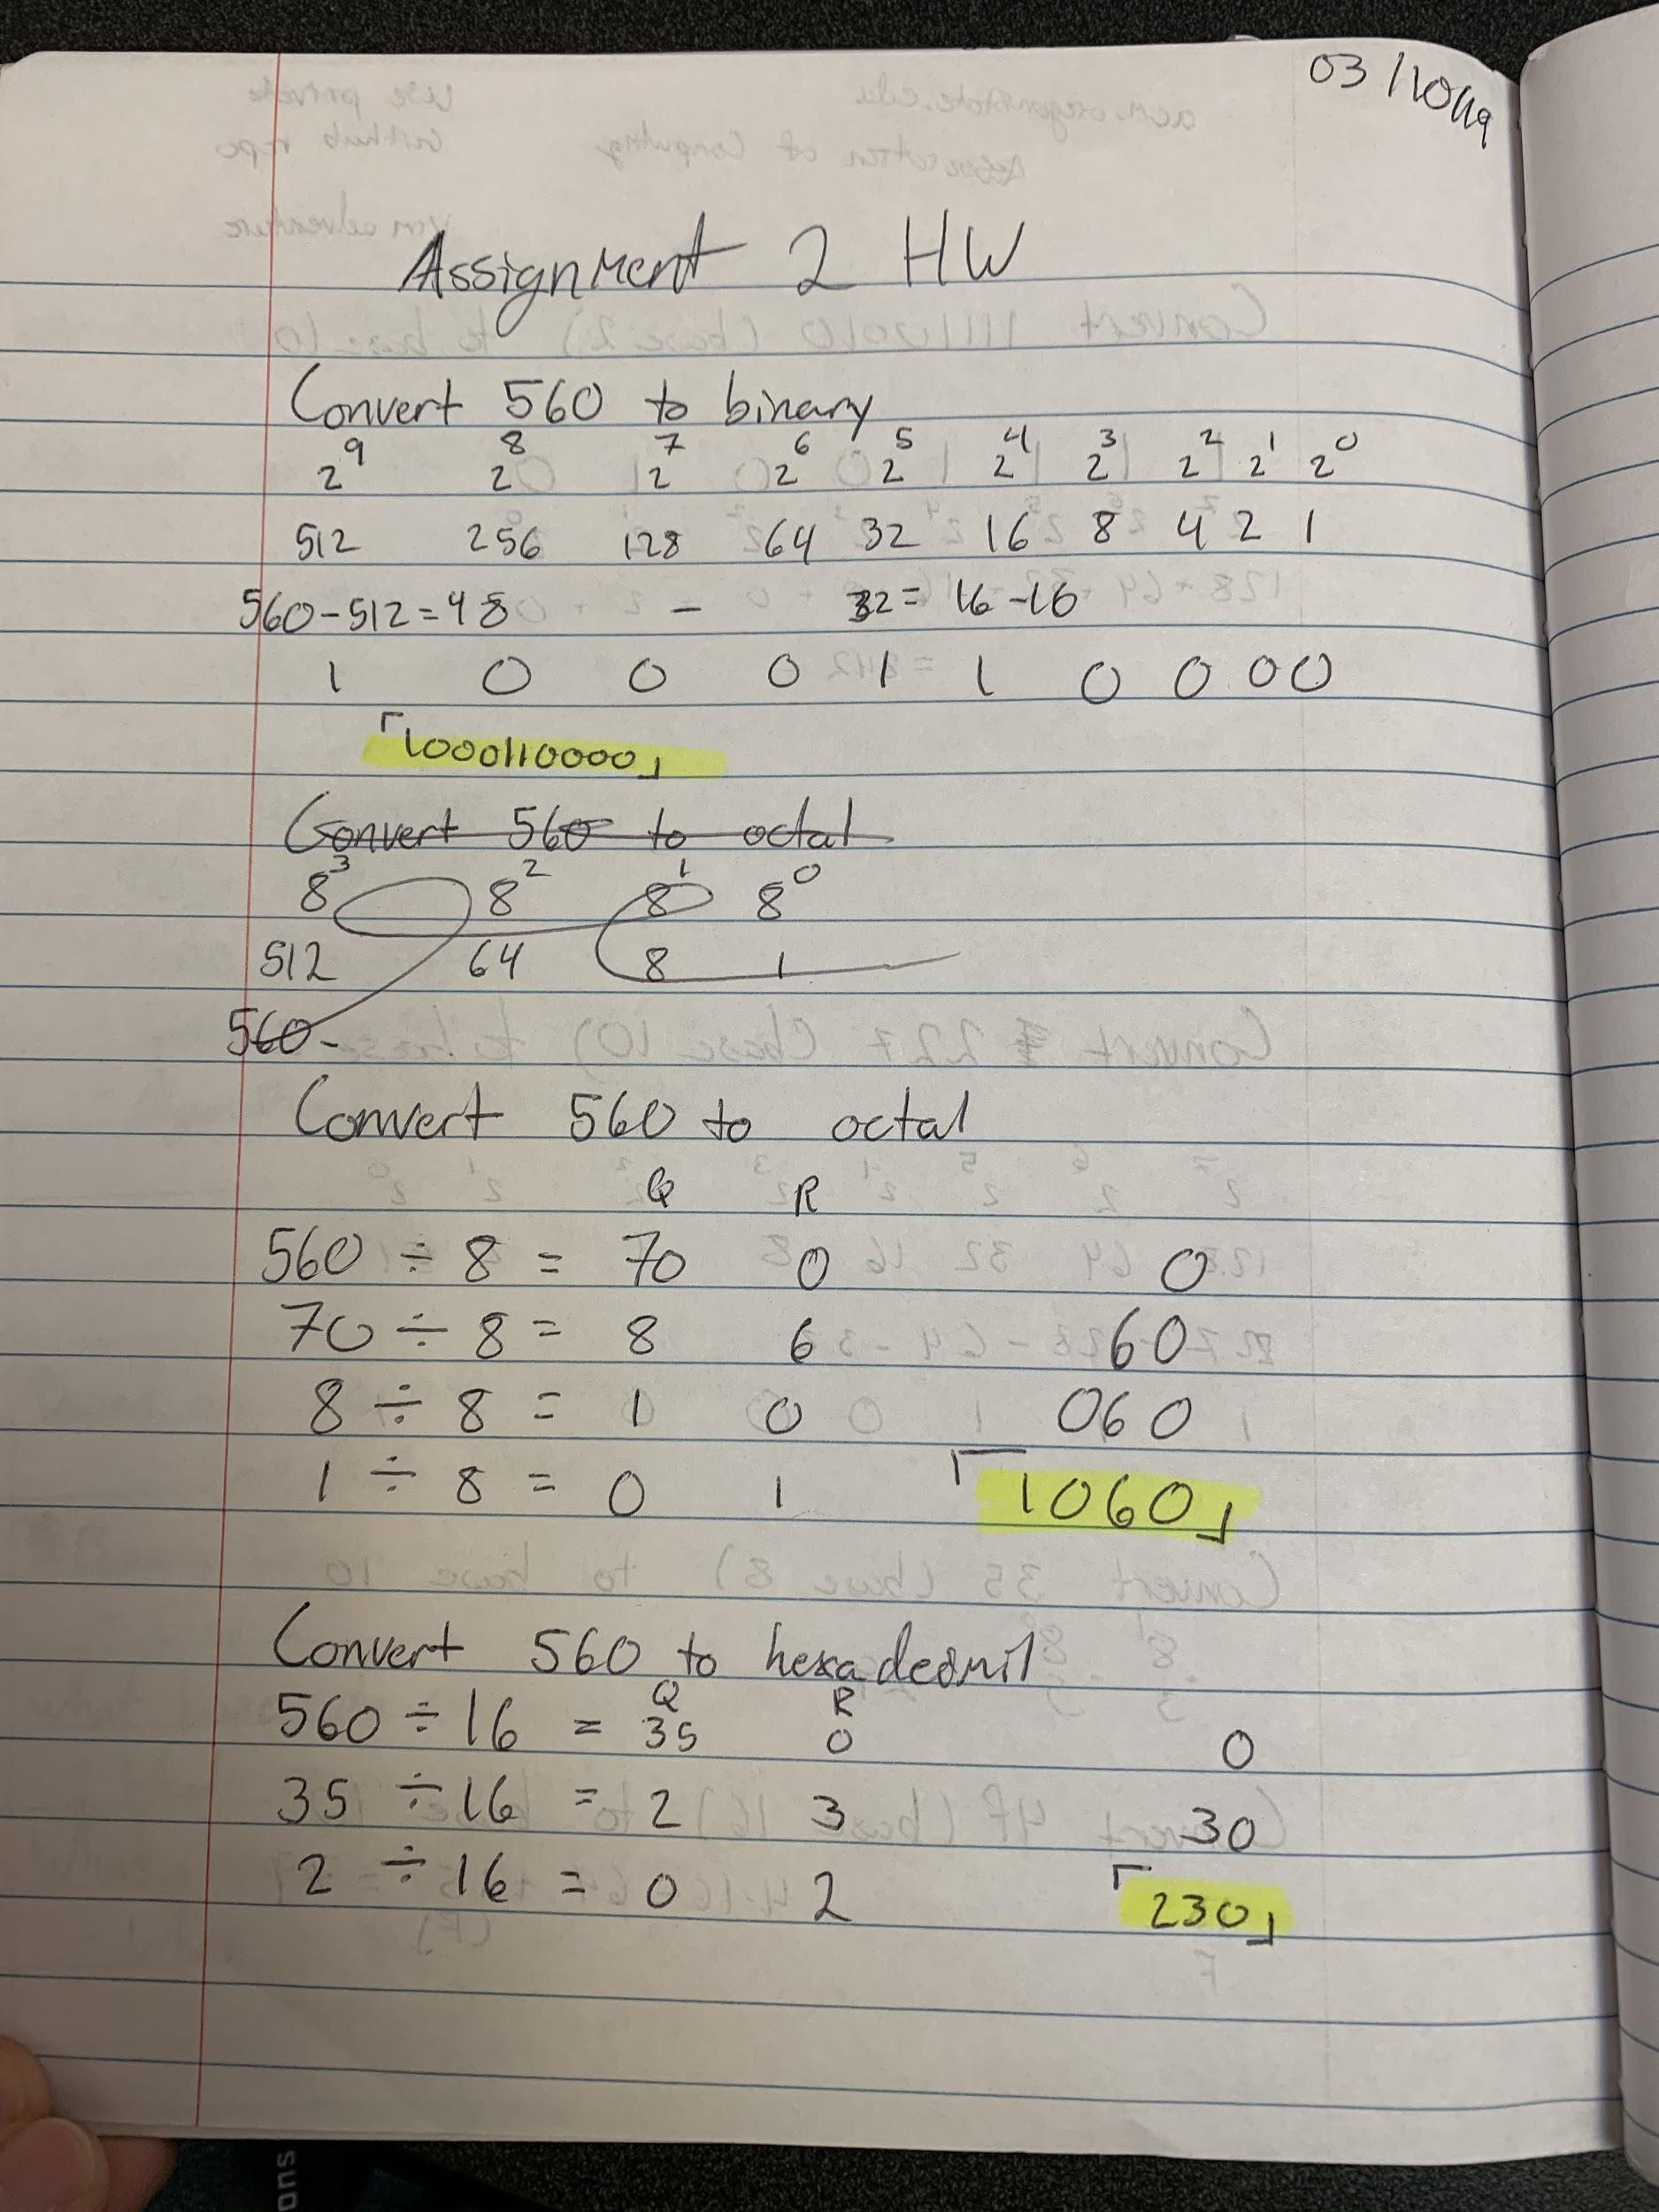 03/10/19
Assignment 2 HW
Convert 560 to binary
2⁹ 2⁸ 2⁷ 2⁶ 2⁵ 2⁴ 2³ 2² 2¹ 2⁰
512 256 128 64 32 16 8 4 2 1
560-512=48 - 32= 16-16
1 0 0 0 1 1 0 0 0 0
1000110000
Convert 560 to octal
8³ 8² 8¹ 8⁰
512 64 8 1
560-
Convert 560 to octal
Q R
560 ÷ 8 = 70 0 0
70 ÷ 8 = 8 6 60
8 ÷ 8 = 1 0 060
1 ÷ 8 = 0 1 1060
Convert 560 to hexadecimil
Q R
560 ÷ 16 = 35 0 0
35 ÷ 16 = 2 3 30
2 ÷ 16 = 0 2 230
ons